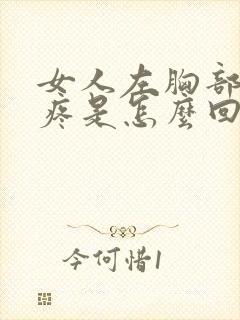 女人左胸部
疼是怎麼回
今何惜1